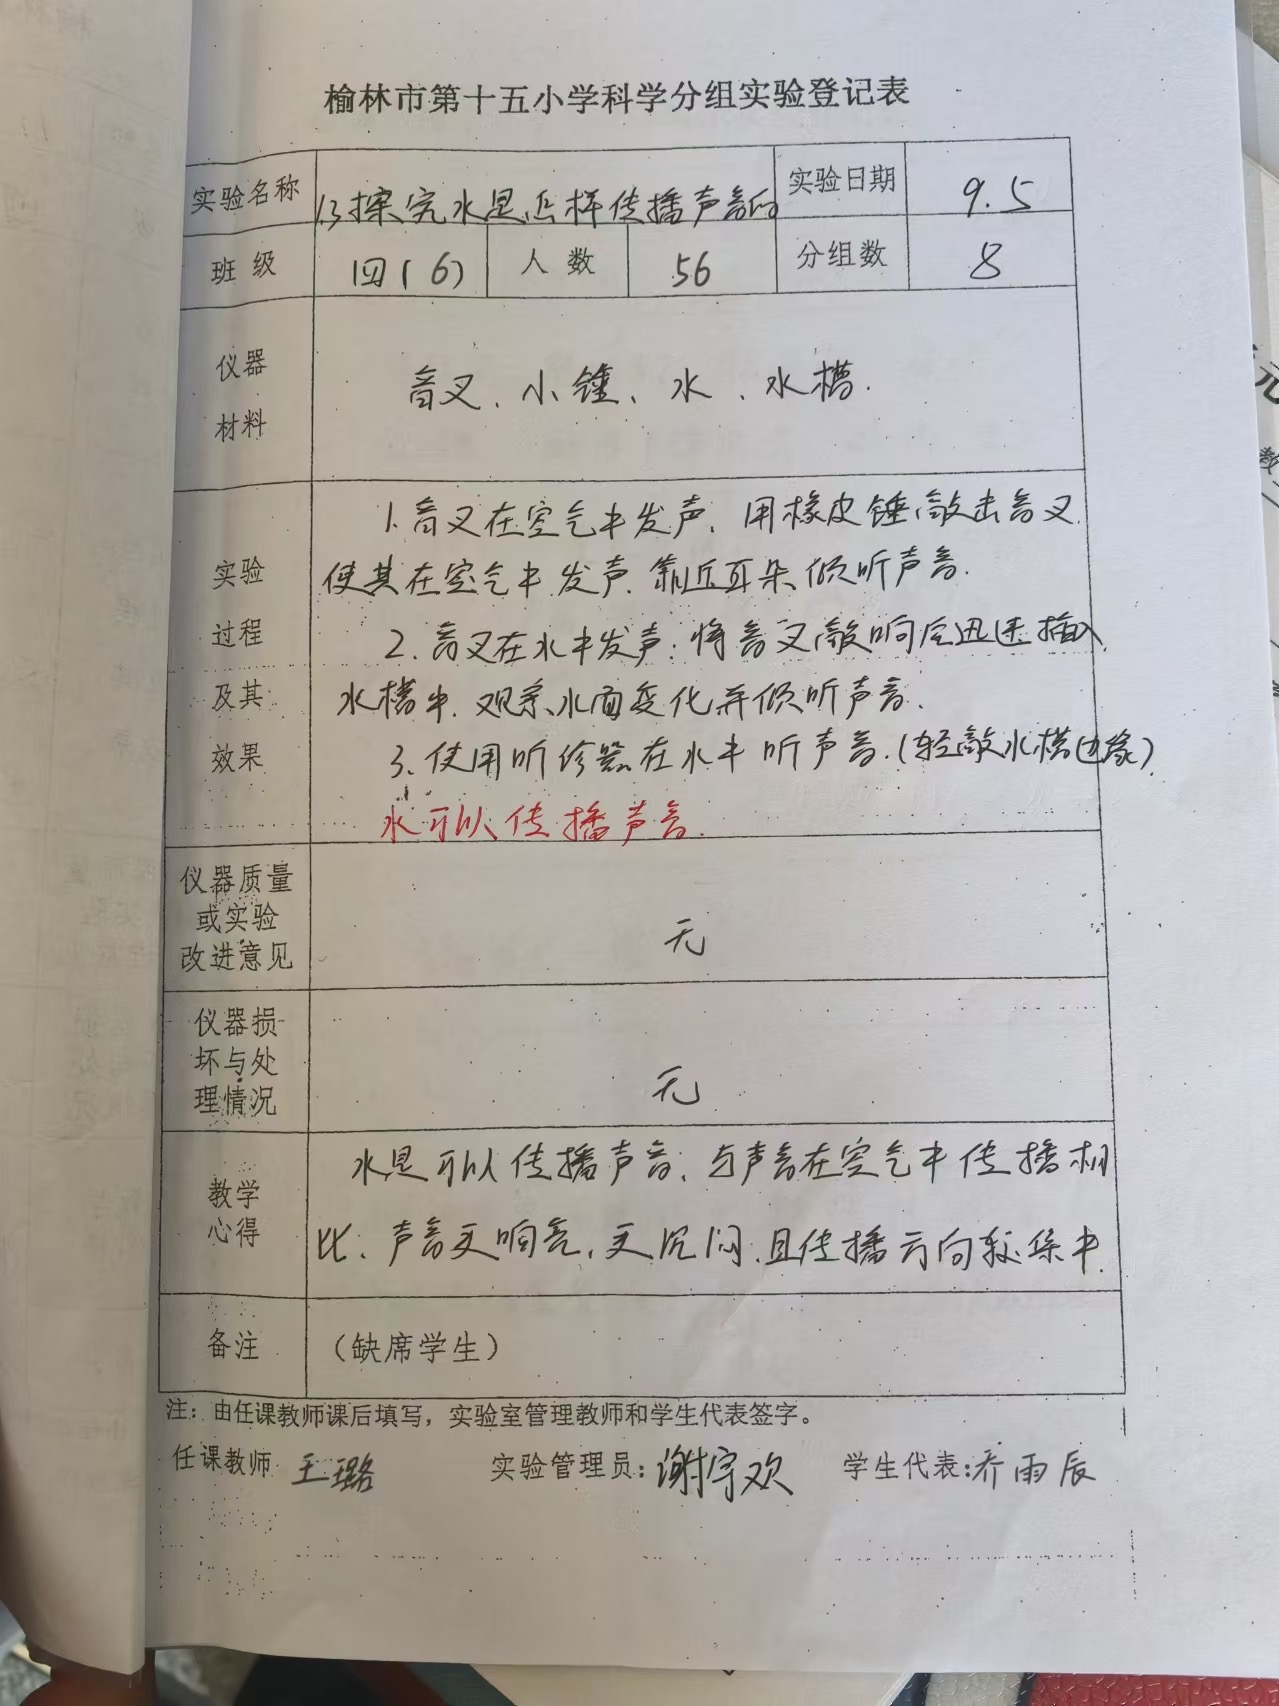 榆林市第十五小学科学分组实验登记表
实验名称 1.3探究水是怎样传播声音的 实验日期 9.5
班级 四(6) 人数 56 分组数 8
仪器
材料
音叉、小锤、水、水槽.
实验
过程
及其
效果
1.音叉在空气中发声. 用橡皮锤敲击音叉.
使其在空气中发声. 靠近耳朵倾听声音.
2.音叉在水中发声:将音叉敲响后迅速插入
水槽中. 观察水面变化并倾听声音.
3.使用听诊器在水中听声音.(轻敲水槽边缘)
水可以传播声音.
仪器质量
或实验
改进意见
无
仪器损
坏与处
理情况
无
教学
心得
水是可以传播声音,与声音在空气中传播相
比,声音更响亮,更沉闷,且传播方向较集中.
备注 (缺席学生)
注:由任课教师课后填写,实验室管理教师和学生代表签字。
任课教师 王璐 实验管理员:谢宇欢 学生代表:乔雨辰